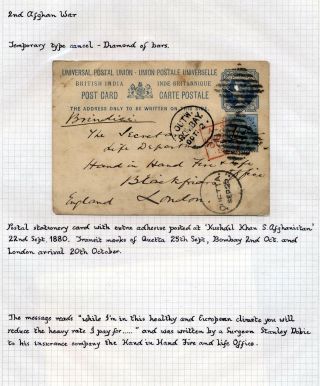 2nd Afghan War
Temporary type cancel - Diamond of bars.
UNIVERSAL POSTAL UNION - UNION POSTALE UNIVERSELLE
BRITISH INDIA INDE BRITANNIQUE
POST CARD CARTE POSTALE
THE ADDRESS ONLY TO BE WRITTEN ON THIS
Brindisi
The Secretary
Life Department
Hand in Hand Fire & Life
Office
Blackfriars
London.
England
SOUTH
BOMBAY
OCT 2
QUETTA
SEP 25
Postal stationery card with extra adhesive posted at 'Kushdil Khan S.Afghanistan'
22nd Sept. 1880. Transit marks of Quetta 25th Sept, Bombay 2nd Oct. and
London arrival 20th October.
The message reads "while I'm in this healthy and European climate you will
reduce the heavy rate I pay for....." and was written by a Surgeon Stanley Dobie
to his insurance company the Hand in Hand Fire and Life Office.